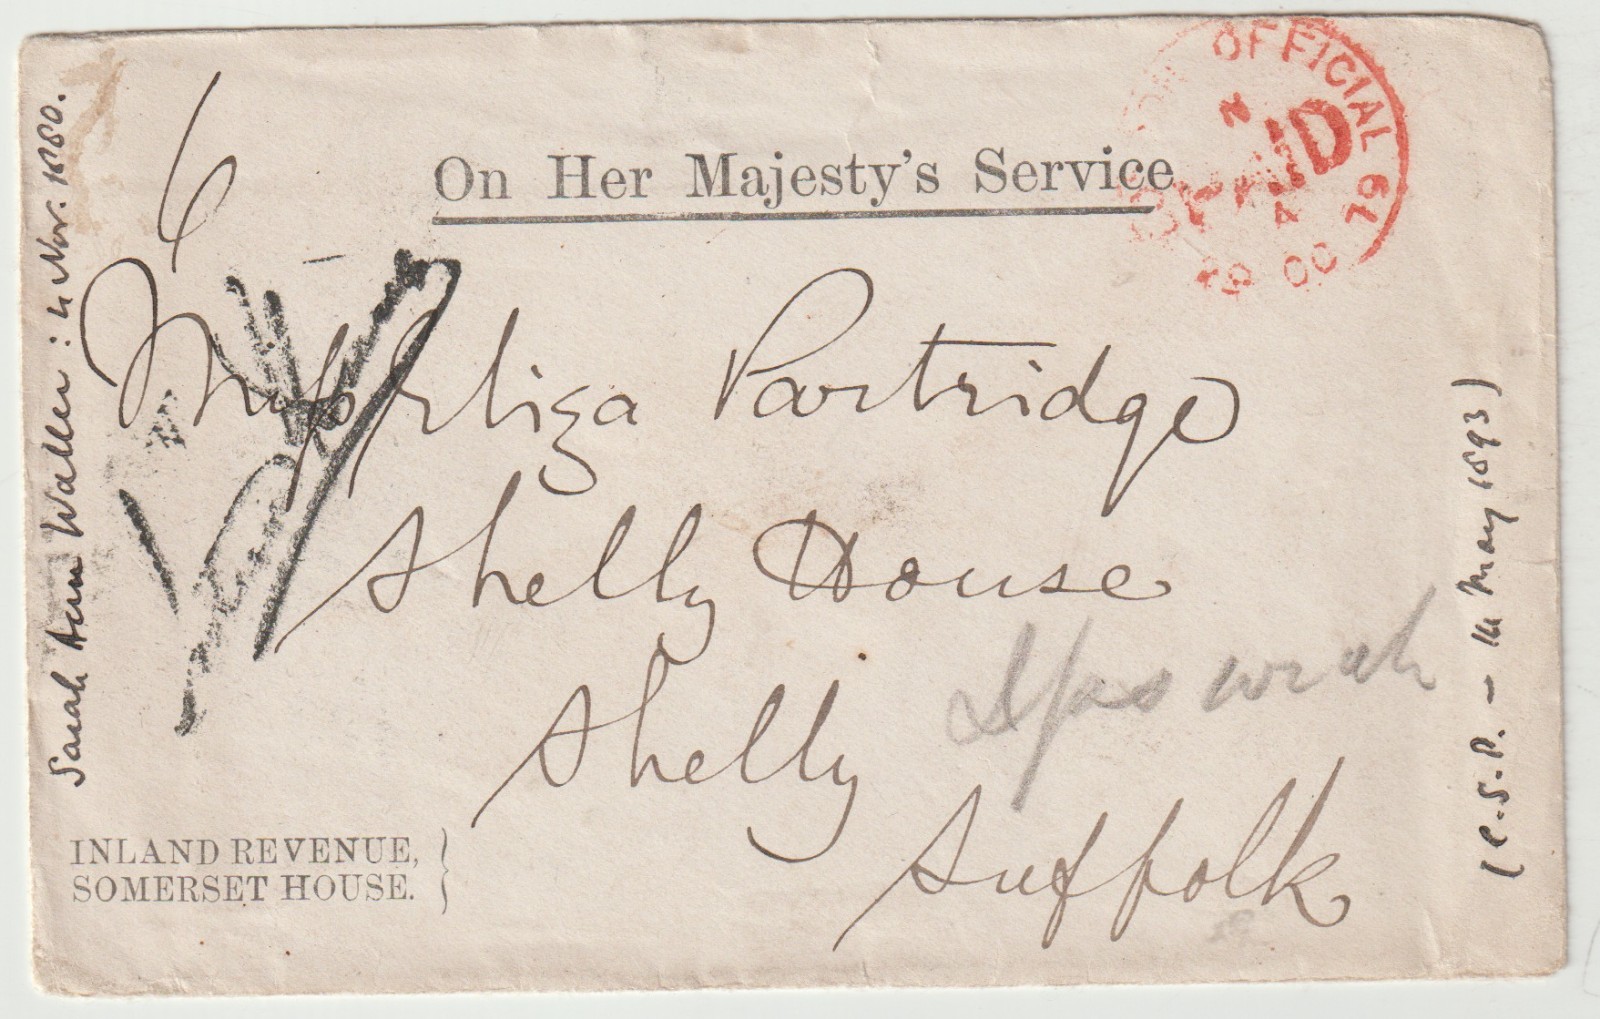 On Her Majesty's Service
OFFICIAL
PAID
OC
6
Miss Eliza Partridge
Shelly House
Shelly
Suffolk
Ipswich
INLAND REVENUE,
SOMERSET HOUSE.
Sarah Ann Waller : 4 Nov. 1880.
(C.S.P. - May 1893)